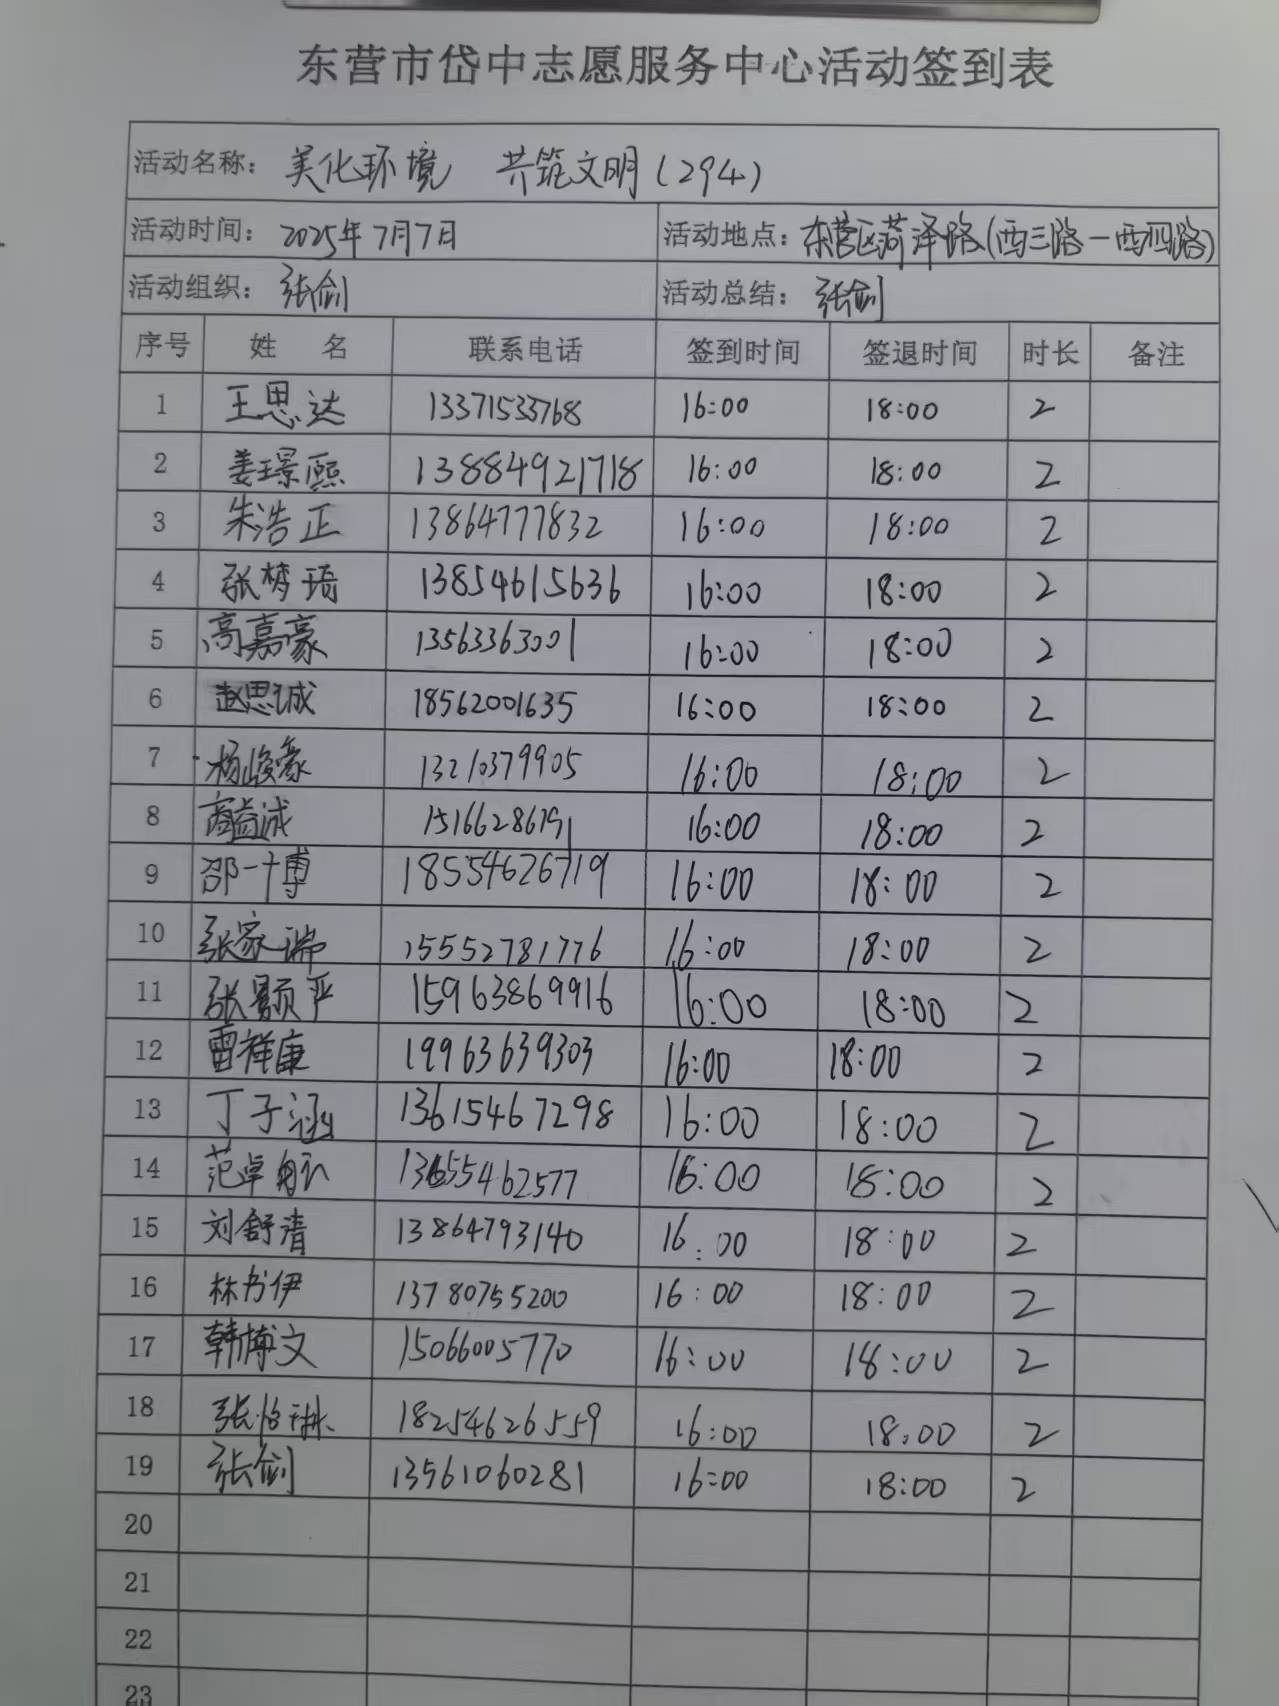 东营市岱中志愿服务中心活动签到表
活动名称: 美化环境 共筑文明(294)
活动时间: 2025年7月7日 活动地点: 东营区菏泽路(西三路-西四路)
活动组织: 张剑 活动总结: 张剑
序号 姓 名 联系电话 签到时间 签退时间 时长 备注
1 王思达 13371533768 16:00 18:00 2
2 姜璟熙 13884921718 16:00 18:00 2
3 朱浩正 13864777832 16:00 18:00 2
4 张梦琦 13854615636 16:00 18:00 2
5 高嘉豪 13563363001 16:00 18:00 2
6 赵思诚 18562001635 16:00 18:00 2
7 杨峻豪 13210379905 16:00 18:00 2
8 商益诚 15166286191 16:00 18:00 2
9 邵一博 18554626719 16:00 18:00 2
10 张家瑞 15552781776 16:00 18:00 2
11 张颢严 15963869916 16:00 18:00 2
12 雷祥康 19963639303 16:00 18:00 2
13 丁子涵 13615467298 16:00 18:00 2
14 范卓航 13655462577 16:00 18:00 2
15 刘舒清 13864793140 16:00 18:00 2
16 林书伊 13780755200 16:00 18:00 2
17 韩博文 15066005770 16:00 18:00 2
18 18254626559 16:00 18:00 2
19 张剑 13561060281 16:00 18:00 2
20
21
22
23